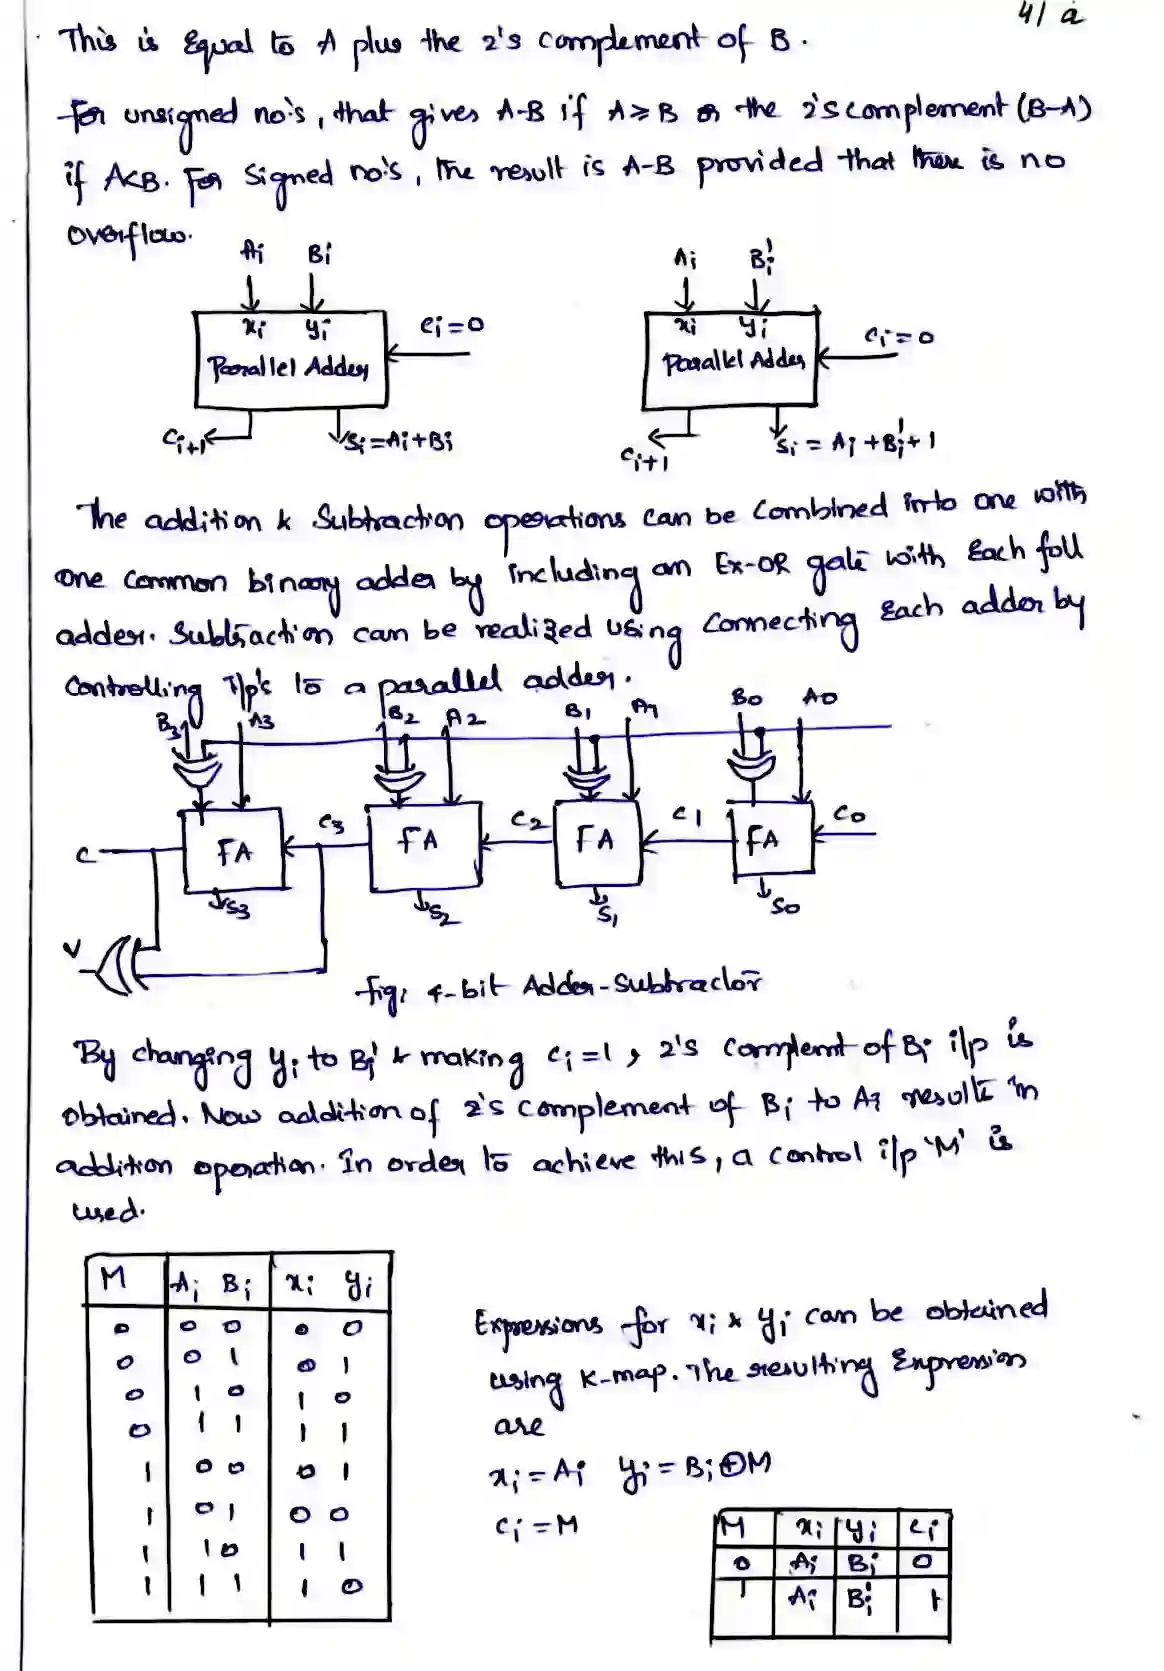 41 a
This is Equal to A plus the 2's complement of B.
For unsigned no's, that gives A-B if A≥B or the 2's complement (B-A)
if A<B. For Signed no's, The result is A-B provided that there is no
overflow.
Ai Bi Ai Bi'
xi yi ci=0 xi yi ci=0
Parallel Adder Parallel Adder
Ci+1 Si=Ai+Bi Ci+1 Si = Ai+Bi'+1
The addition & Subtraction operations can be Combined into one with
one common binary adder by including an Ex-OR gate with Each full
adder. Subtraction can be realized using Connecting Each adder by
Controlling I/p's to a parallel adder.
B3 A3 B2 A2 B1 A1 B0 A0
C FA C3 FA C2 FA C1 FA C0
S3 S2 S1 S0
V
fig: 4-bit Adder-Subtractor
By changing yi to Bi' & making ci=1, 2's Complemt of Bi i/p is
obtained. Now addition of 2's complement of Bi to Ai results in
addition operation. In order to achieve this, a control i/p 'M' is
used.
M Ai Bi xi yi
0 0 0 0 0
0 0 1 0 1
0 1 0 1 0
0 1 1 1 1
1 0 0 0 1
1 0 1 0 0
1 1 0 1 1
1 1 1 1 0
Expressions for xi & yi can be obtained
using K-map. The resulting Expression
are
xi = Ai yi = Bi⊕M
ci = M
M xi yi ci
0 Ai Bi 0
1 Ai Bi' 1